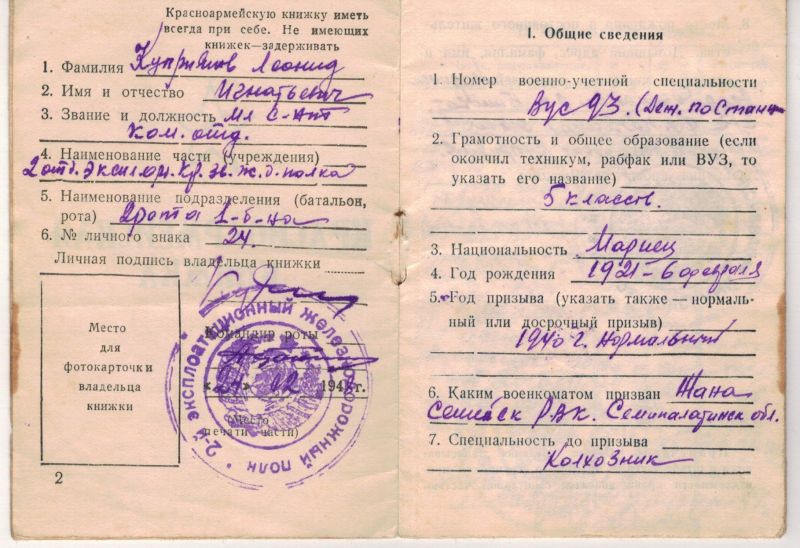 Красноармейскую книжку иметь
всегда при себе. Не имеющих
книжек—задерживать
1. Фамилия Куприянов Леонид
2. Имя и отчество Игнатьевич
3. Звание и должность Мл С-Ант
Ком. отд.
4. Наименование части (учреждения)
2 отд. Эксплоат. Кр. зв. ж. д. полка
5. Наименование подразделения (батальон,
рота) 2 рота 1-б-на
6. № личного знака 24.
Личная подпись владельца книжки
Место
для
фотокарточки
владельца
книжки
Командир роты
194 г.
(Место
печати части)
2-й эксплоатационный железнодорожный полк
2
I. Общие сведения
1. Номер военно-учетной специальности
Вус 93. (Деж. по Станц
2. Грамотность и общее образование (если
окончил техникум, рабфак или ВУЗ, то
указать его название)
5 классов.
3. Национальность Мариец
4. Год рождения 1921 - 6 февраля
5. Год призыва (указать также — нормаль-
ный или досрочный призыв)
1940 г. Нормальный
6. Каким военкоматом призван Жана
Семейск РВК. Семипалатинск обл.
7. Специальность до призыва
Колхозник